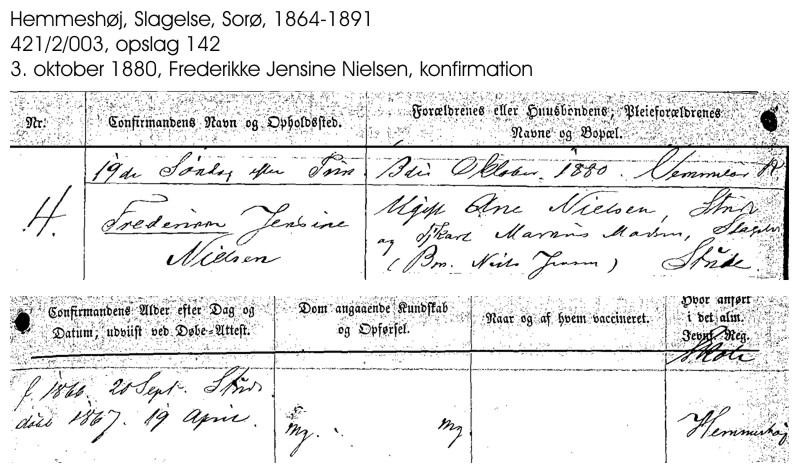 Hemmeshøj, Slagelse, Sorø, 1864-1891
421/2/003, opslag 142
3. oktober 1880, Frederikke Jensine Nielsen, konfirmation
Nr.
Confirmandens Navn og Opholdssted.
Forældrenes eller Huusbondens, Pleieforældrenes
Navne og Bopæl.
19de Søndag efter Trin.
3die Oktober 1880. Vemmelev K
4.
Jensine
Nielsen
Ugift Ane Nielsen,
og Marinus Madsen, Slagelse
(Niels Jensen) Stude.
Confirmandens Alder efter Dag og
Datum, udviist ved Døbe-Attest.
Dom angaaende Kundskab
og Opførsel.
Naar og af hvem vaccineret.
Hvor anført
i det alm.
Jevnf.-Reg.
f. 1866. 20 Sept. Stude
døbt 1867. 19 April.
mg. mg.
Hemmeshøj